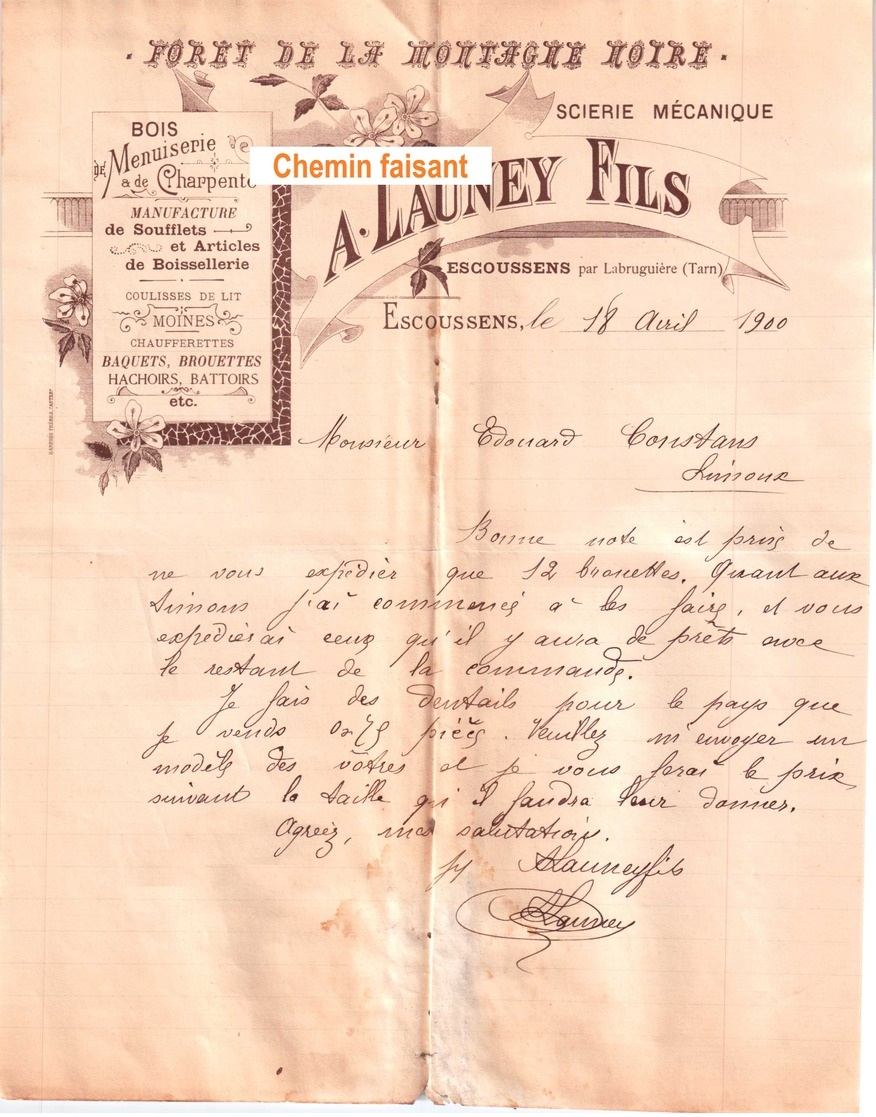 FORÊT DE LA MONTAGNE NOIRE
SCIERIE MÉCANIQUE
Chemin faisant
A. LAUNEY FILS
ESCOUSSENS par Labruguière (Tarn)
BOIS
DE Menuiserie
& de Charpente
MANUFACTURE
de Soufflets
et Articles
de Boissellerie
COULISSES DE LIT
MOINES
CHAUFFERETTES
BAQUETS, BROUETTES
HACHOIRS, BATTOIRS
etc.
ESCOUSSENS, le 18 Avril 1900
Monsieur Edouard Constans
Limoux
Bonne note est prise de
ne vous expédier que 12 brouettes. Quant aux
timons j'ai commencé à les faire, et vous
expédierai ceux qu'il y aura de prêts avec
le restant de la commande.
Je fais des dentails pour le pays que
je vends 0,75 pièce. Veuillez m'envoyer un
modèle des vôtres et je vous ferai le prix
suivant la taille qu'il faudra leur donner.
Agréez, mes salutations.
A Launey fils
ALauney